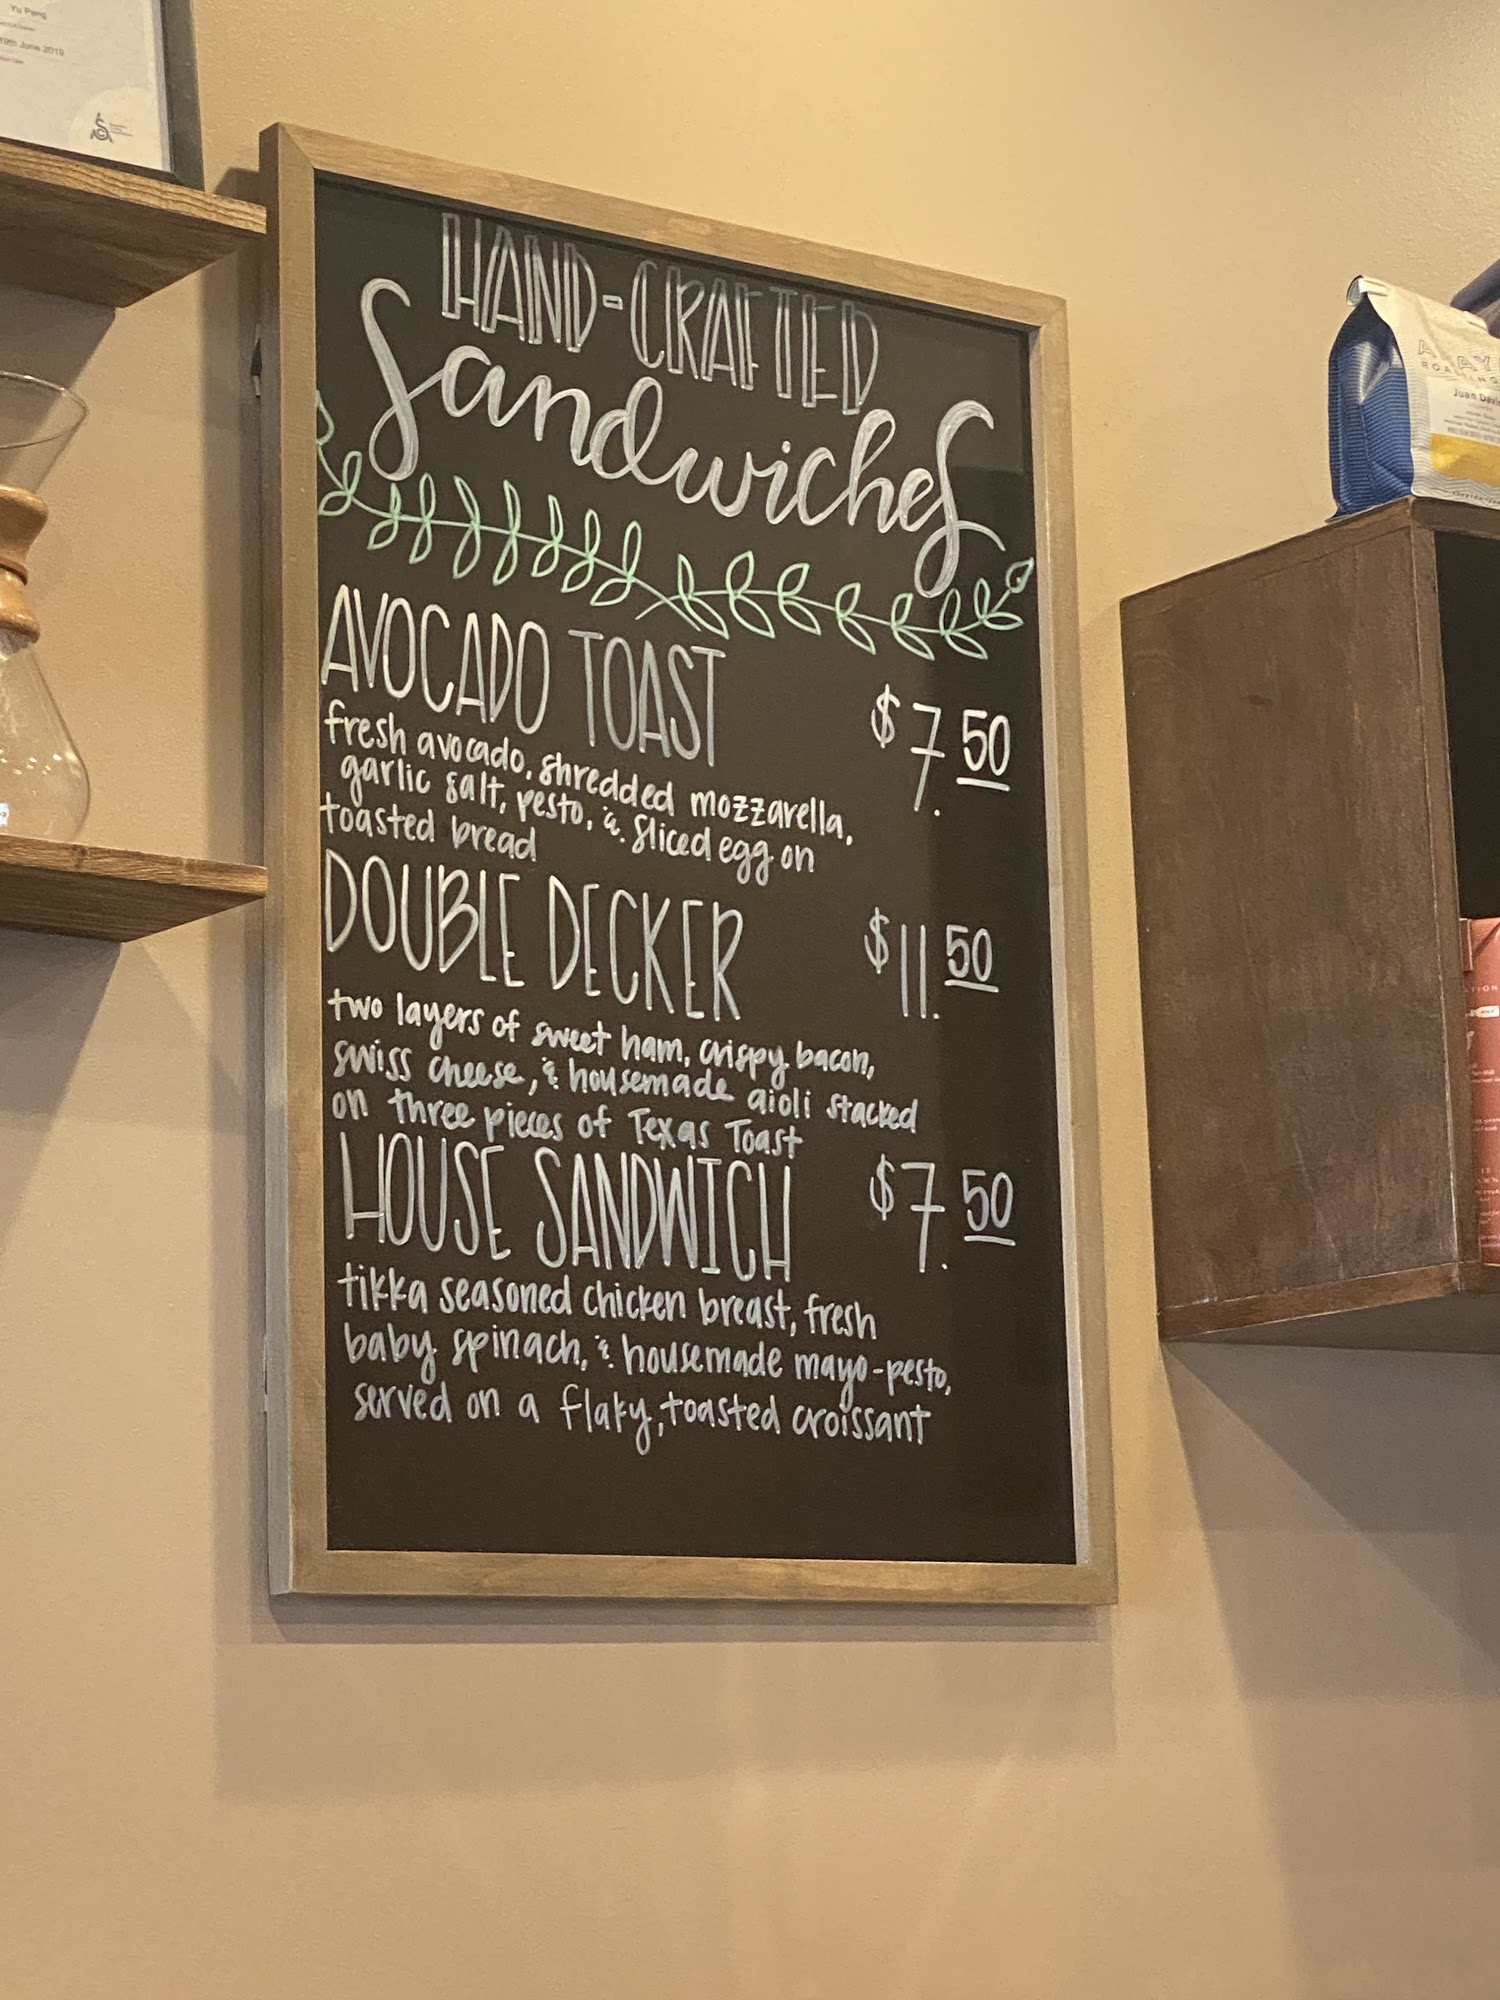 Yu Peng
19th June 2019
HAND-CRAFTED
Sandwiches
AVOCADO TOAST $7.50
fresh avocado, shredded mozzarella,
garlic salt, pesto, & sliced egg on
toasted bread
DOUBLE DECKER $11.50
two layers of sweet ham, crispy bacon,
swiss cheese, & housemade aioli stacked
on three pieces of Texas Toast
HOUSE SANDWICH $7.50
tikka seasoned chicken breast, fresh
baby spinach, & housemade mayo-pesto,
served on a flaky, toasted croissant
Juan